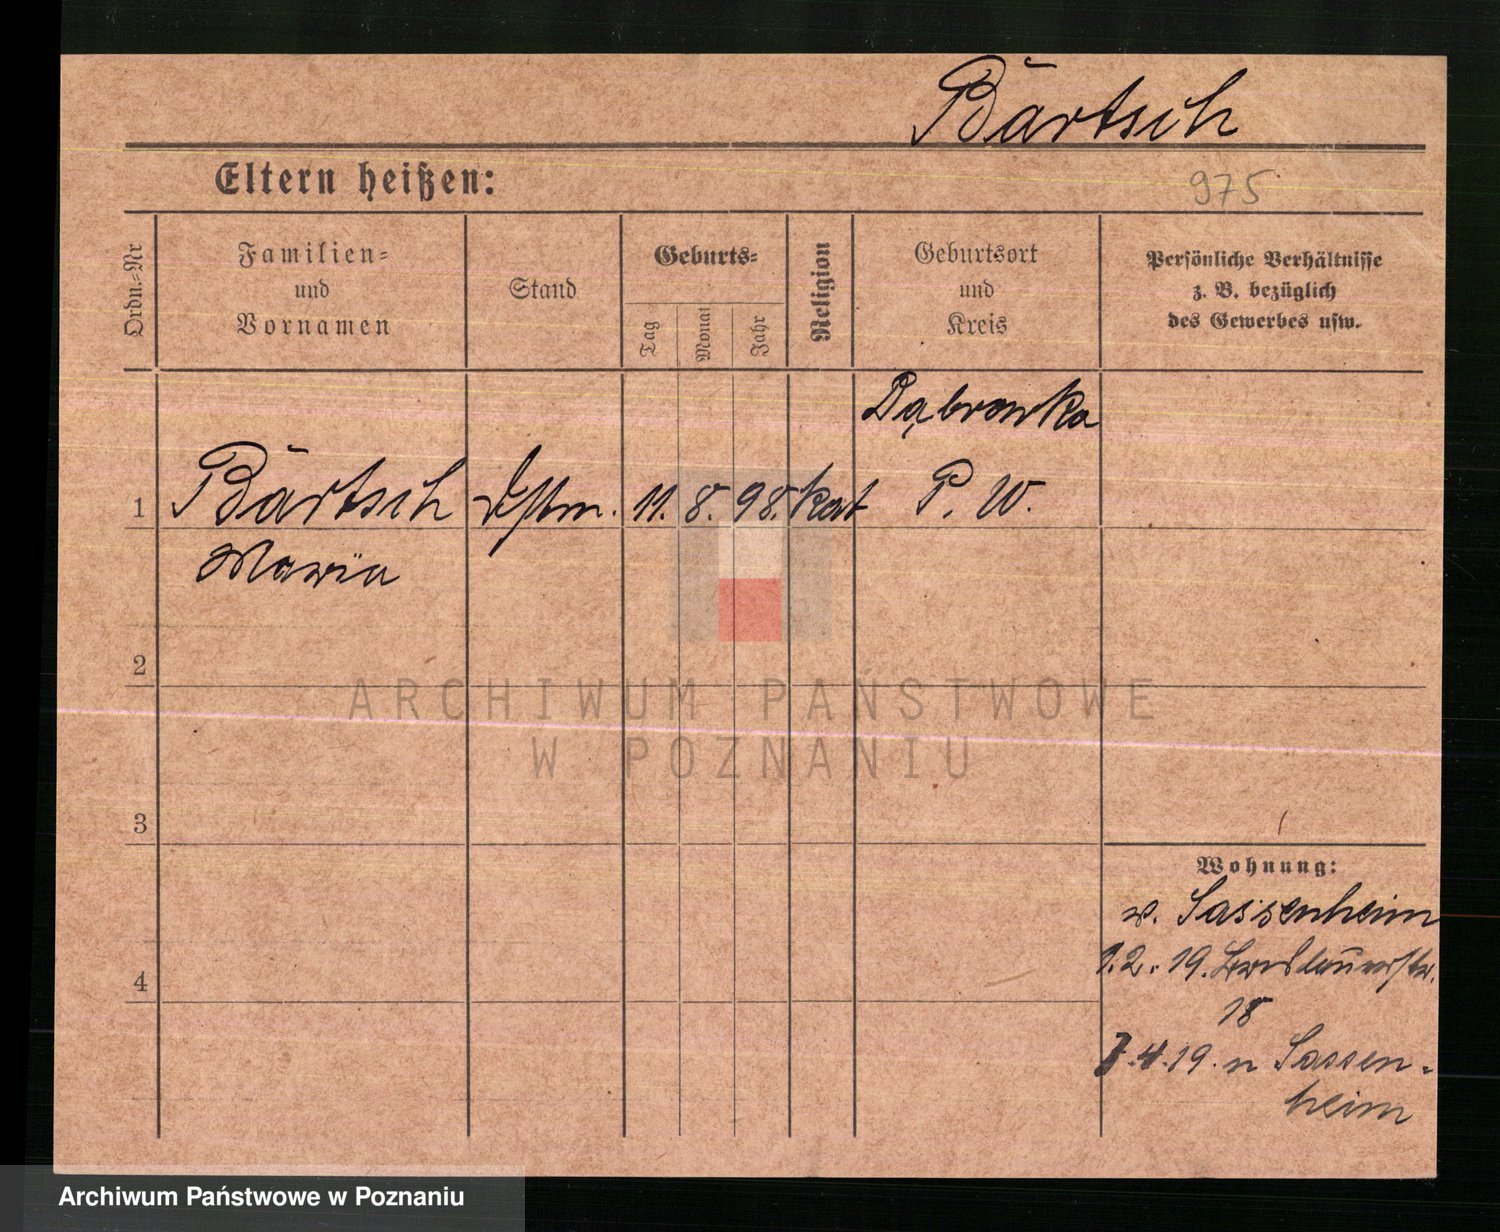 Bärtsch
Eltern heißen:
975
Ordn.-Nr
Familien-
und
Vornamen
Stand
Geburts-
Tag
Monat
Jahr
Religion
Geburtsort
und
Kreis
Persönliche Verhältnisse
z. B. bezüglich
des Gewerbes usw.
Dąbrowka
1 Bärtsch 11. 8. 98. kat P. W.
Maria
2
ARCHIWUM PAŃSTWOWE
W POZNANIU
3
Wohnung:
v. Sassenheim
1.2.19. Breslauerstr.
18
7.4.19. n Sassen-
heim
4
Archiwum Państwowe w Poznaniu